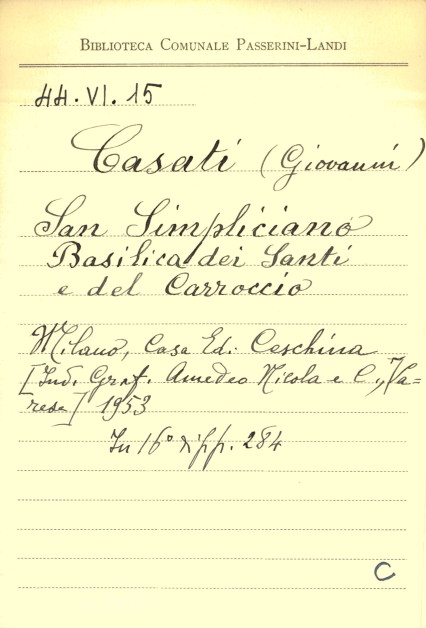 BIBLIOTECA COMUNALE PASSERINI-LANDI
44.VI.15
Casati (Giovanni)
San Simpliciano
Basilica dei Santi
e del Carroccio
Milano, Casa Ed. Ceschina
[Ind. Graf. Amedeo Nicola e C., Va-
rese] 1953
In 16° di pp. 284
C